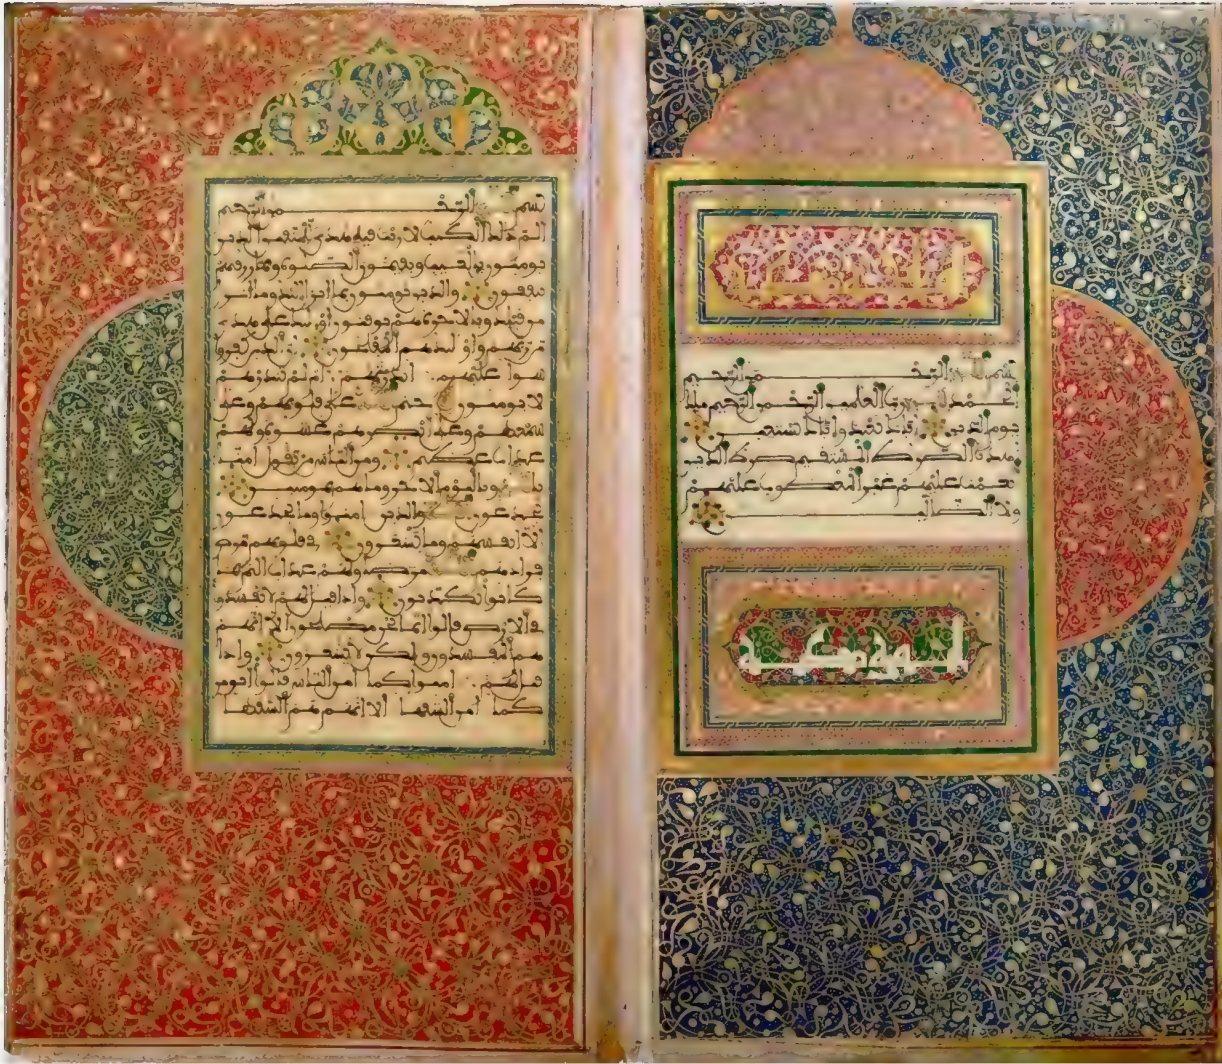 بسم الله الرحمن الرحيم
الحمد لله رب العالمين الرحمن الرحيم ملك
يوم الدين إياك نعبد وإياك نستعين
اهدنا الصراط المستقيم صراط الذين
أنعمت عليهم غير المغضوب عليهم
ولا الضالين
بسم الله الرحمن الرحيم
الم ذلك الكتب لا ريب فيه هدى للمتقين الذين
يومنون بالغيب ويقيمون الصلوة ومما رزقنهم
ينفقون والذين يومنون بما أنزل إليك وما أنزل
من قبلك وبالاخرة هم يوقنون أولئك على هدى
من ربهم وأولئك هم المفلحون إن الذين كفروا
سواء عليهم ءانذرتهم أم لم تنذرهم
لا يومنون ختم الله على قلوبهم وعلى
سمعهم وعلى أبصرهم غشوة ولهم
عذاب عظيم ومن الناس من يقول امنا
بالله وباليوم الاخر وما هم بمومنين
يخدعون الله والذين امنوا وما يخدعون
إلا أنفسهم وما يشعرون في قلوبهم مرض
فزادهم الله مرضا ولهم عذاب اليم بما
كانوا يكذبون وإذا قيل لهم لا تفسدوا
في الارض قالوا إنما نحن مصلحون ألا إنهم
هم المفسدون ولكن لا يشعرون وإذا
قيل لهم امنوا كما امن الناس قالوا أنومن
كما امن السفهاء ألا إنهم هم السفهاء